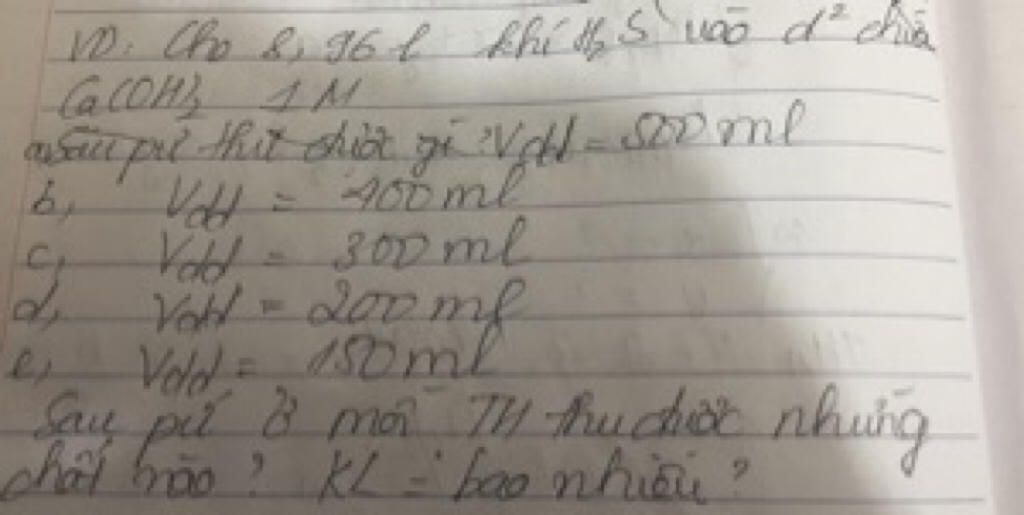 VD: Cho 8,96 l khí H₂S vào d² chứa
Ca(OH)₂ 1M
a, Sau pứ thu được gì? Vdd = 500 ml
b, Vdd = 400 ml
c, Vdd = 300 ml
d, Vdd = 200 ml
e, Vdd = 150 ml
Sau pứ ở mỗi TH thu được những
chất nào? KL = bao nhiêu?